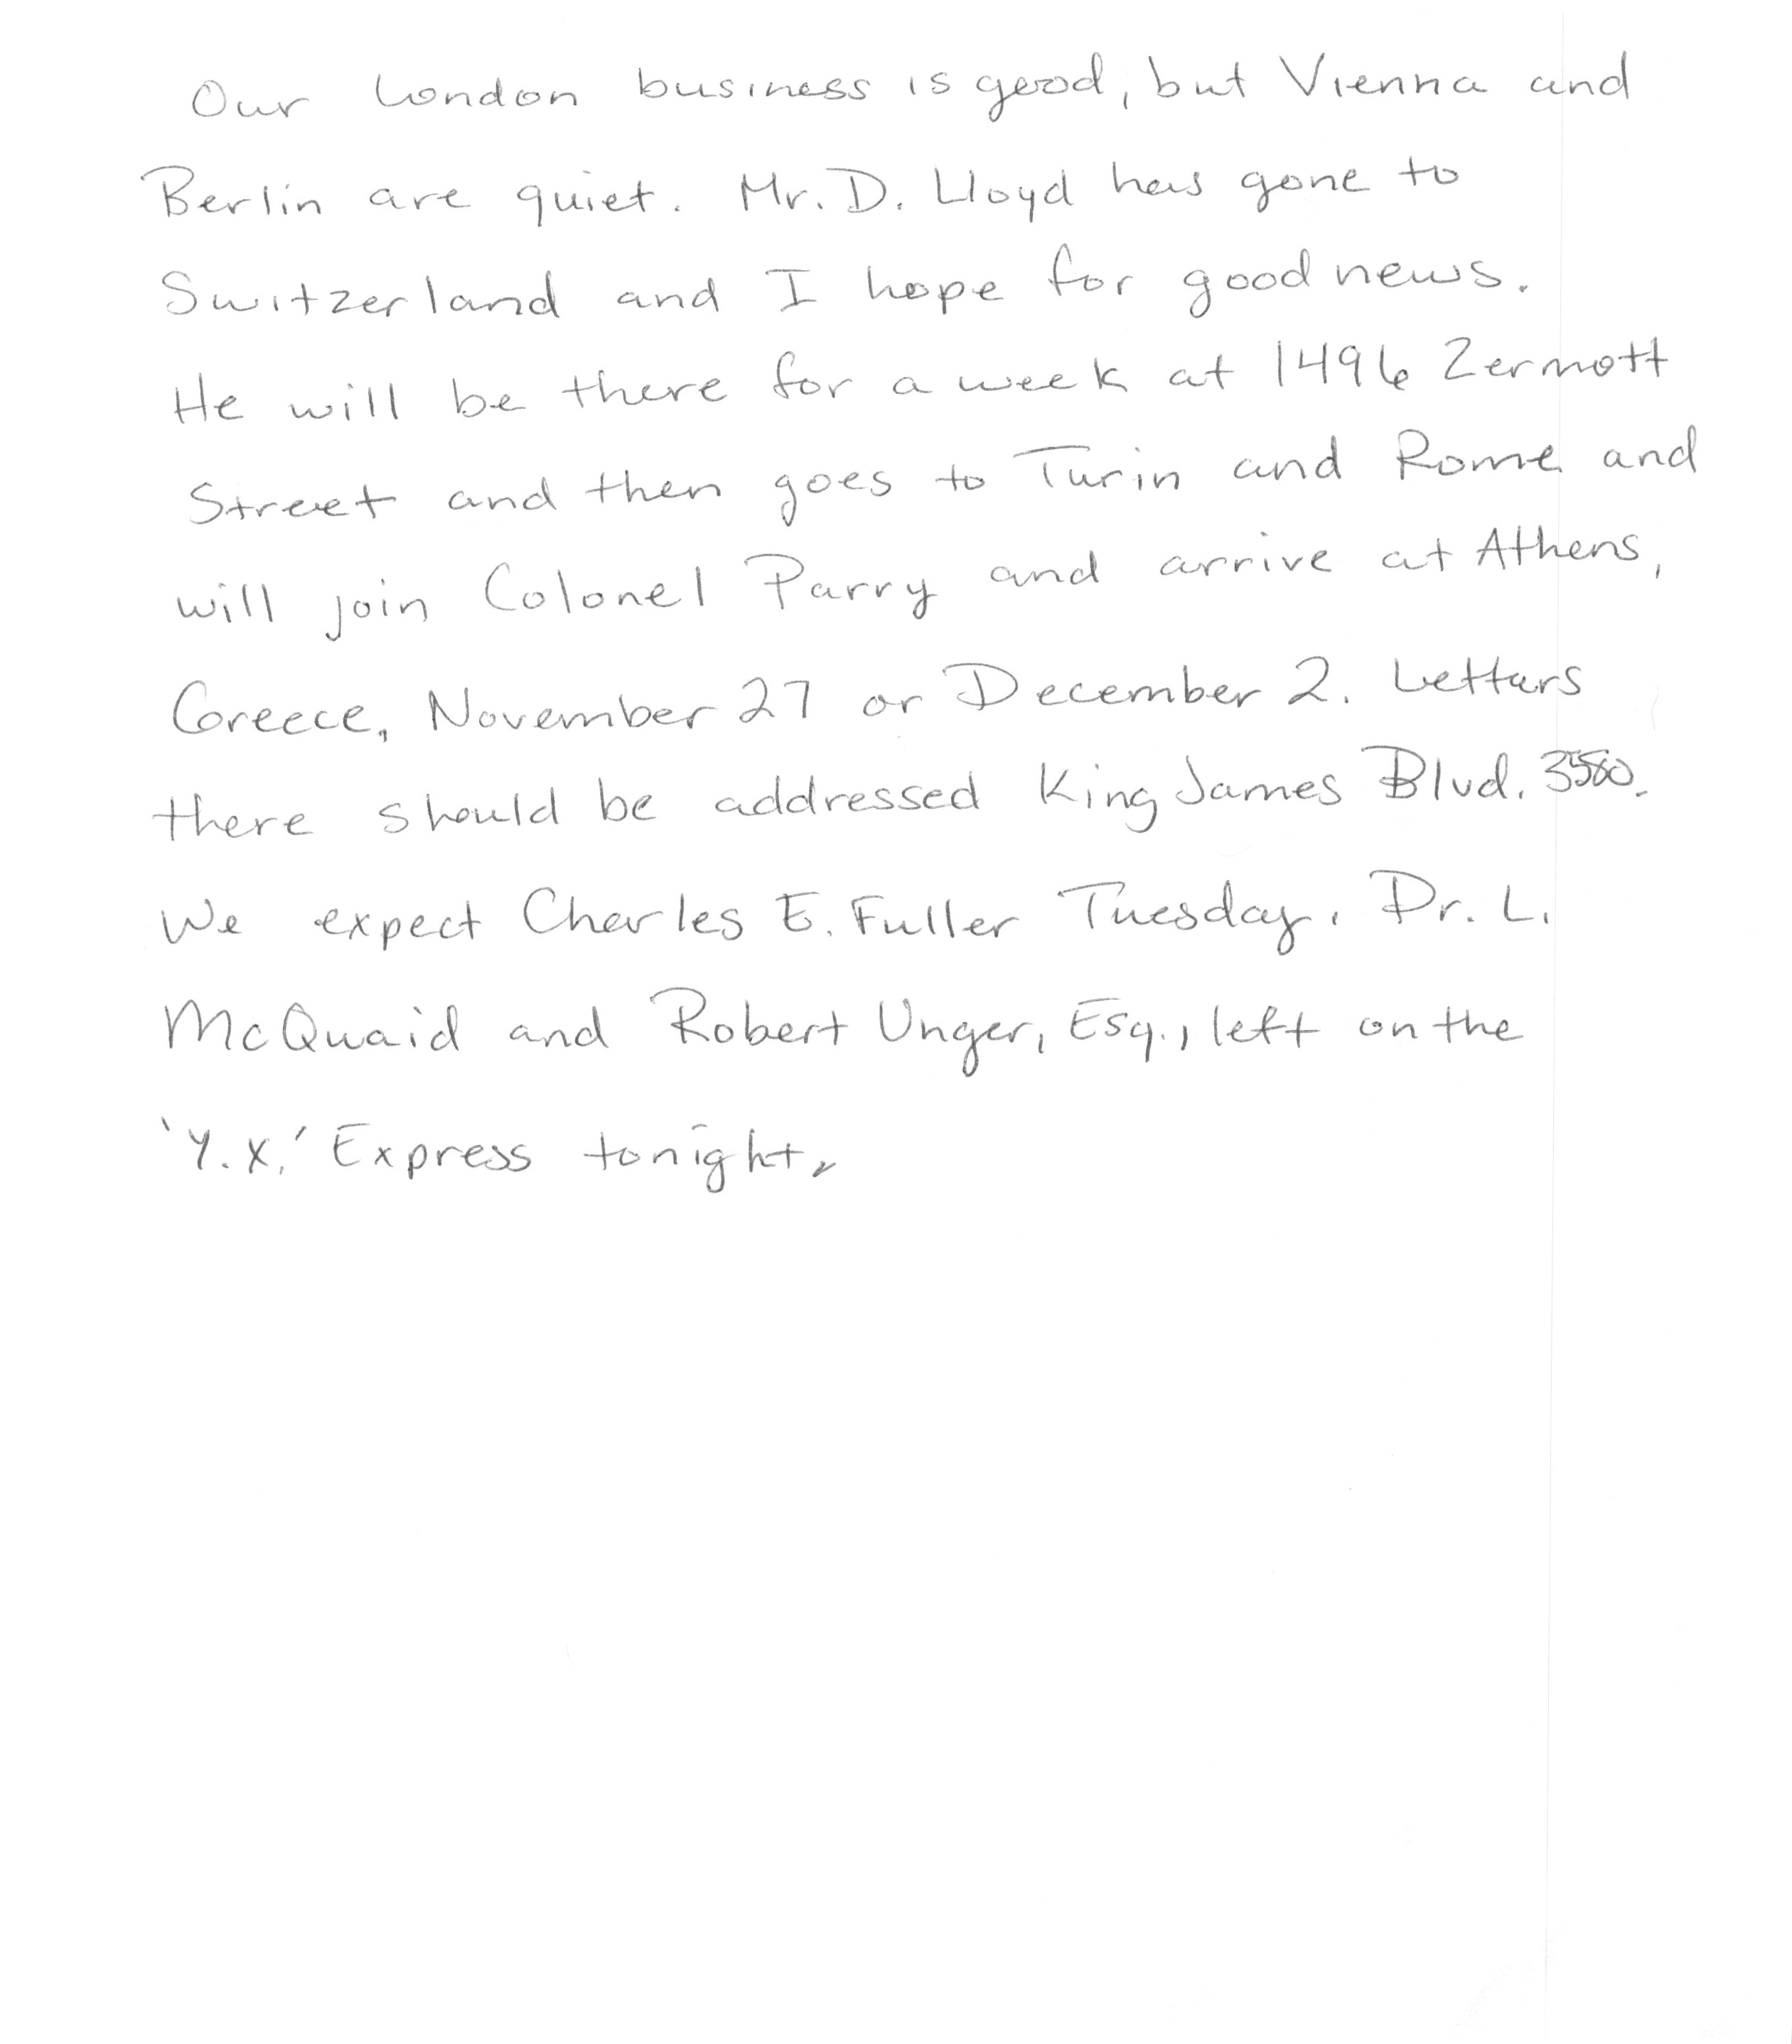 Our London business is good, but Vienna and
Berlin are quiet. Mr. D. Lloyd has gone to
Switzerland and I hope for good news.
He will be there for a week at 1496 Zermott
Street and then goes to Turin and Rome and
will join Colonel Parry and arrive at Athens,
Greece, November 27 or December 2. Letters
there should be addressed King James Blvd. 3580.
We expect Charles E. Fuller Tuesday. Dr. L.
McQuaid and Robert Unger, Esq., left on the
'Y.X.' Express tonight.